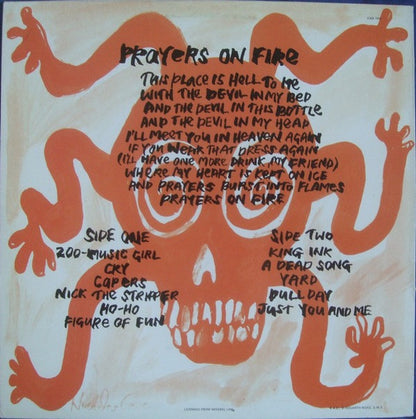 PRAYERS ON FIRE
THIS PLACE IS HELL TO ME
WITH THE DEVIL IN MY BED
AND THE DEVIL IN THIS BOTTLE
AND THE DEVIL IN MY HEAD
I'LL MEET YOU IN HEAVEN AGAIN
IF YOU WEAR THAT DRESS AGAIN
(I'LL HAVE ONE MORE DRINK, MY FRIEND)
WHERE MY HEART IS KEPT ON ICE
AND PRAYERS BURST INTO FLAMES
PRAYERS ON FIRE
SIDE ONE
ZOO-MUSIC GIRL
CRY
CAPERS
NICK THE STRIPPER
HO-HO
FIGURE OF FUN
SIDE TWO
KING INK
A DEAD SONG
YARD
DULL DAY
JUST YOU AND ME